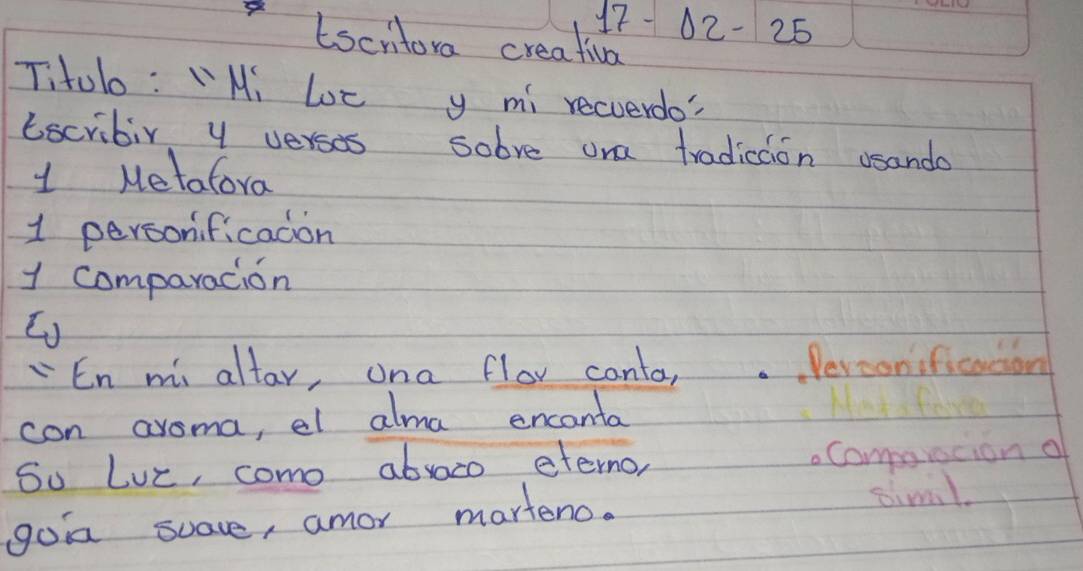 17-02-25
Escritura creativa
Titulo: "Mi Luz y mi recuerdo"
Escribir 4 versos sobre una tradicción usando
1 Metafora
1 personificación
1 comparación
Ej
"En mi altar, una flor canta, . . Personificación
con aroma, el alma encanta . Metafora
Su Luz, como abrazo eterno, . Comparación o
guía suave, amor marteno. simil.